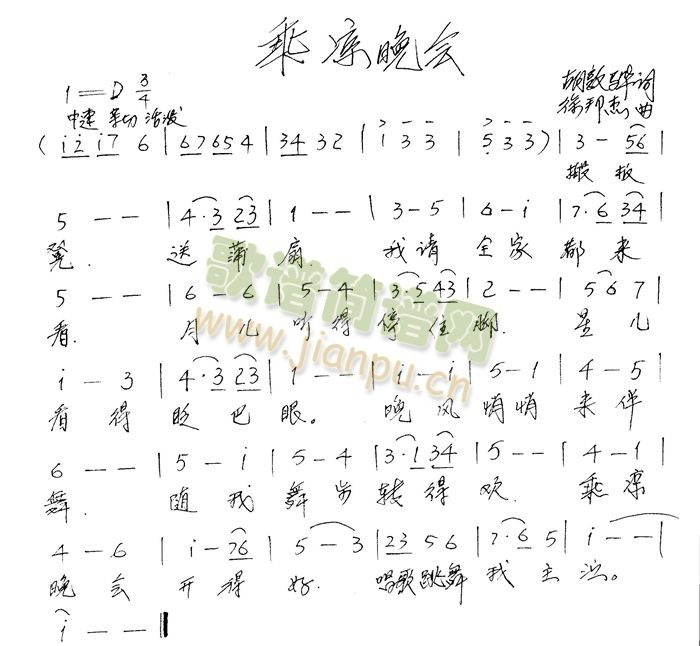 乘凉晚会
1=D 3/4
中速 亲切 活泼
胡敦骅词
徐邦杰曲
( i 2 i 7 6 | 6 7 6 5 4 | 3 4 3 2 | i 3 3 | 5 3 3 ) | 3 - 5 6 |
搬 板
5 - - | 4 · 3 2 3 | 1 - - | 3 - 5 | 6 - i | 7 · 6 3 4 |
凳. 送 蒲 扇. 我 请 全 家 都 来
5 - - | 6 - 6 | 5 - 4 | 3 · 5 4 3 | 2 - - | 5 6 7 |
看. 月 儿 听 得 停 住 脚. 星 儿
i - 3 | 4 · 3 2 3 | 1 - - | i - i | 5 - 1 | 4 - 5 |
看 得 眨 巴 眼。 晚 风 悄 悄 来 伴
6 - - | 5 - i | 5 - 4 | 3 · 1 3 4 | 5 - - | 4 - 1 |
舞. 随 我 舞 步 转 得 欢. 乘 凉
4 - 6 | i - 7 6 | 5 - 3 | 2 3 5 6 | 7 · 6 5 | i - - |
晚 会 开 得 好. 唱歌跳舞 我 主 演。
i - - ‖
歌谱简谱网
www.jianpu.cn